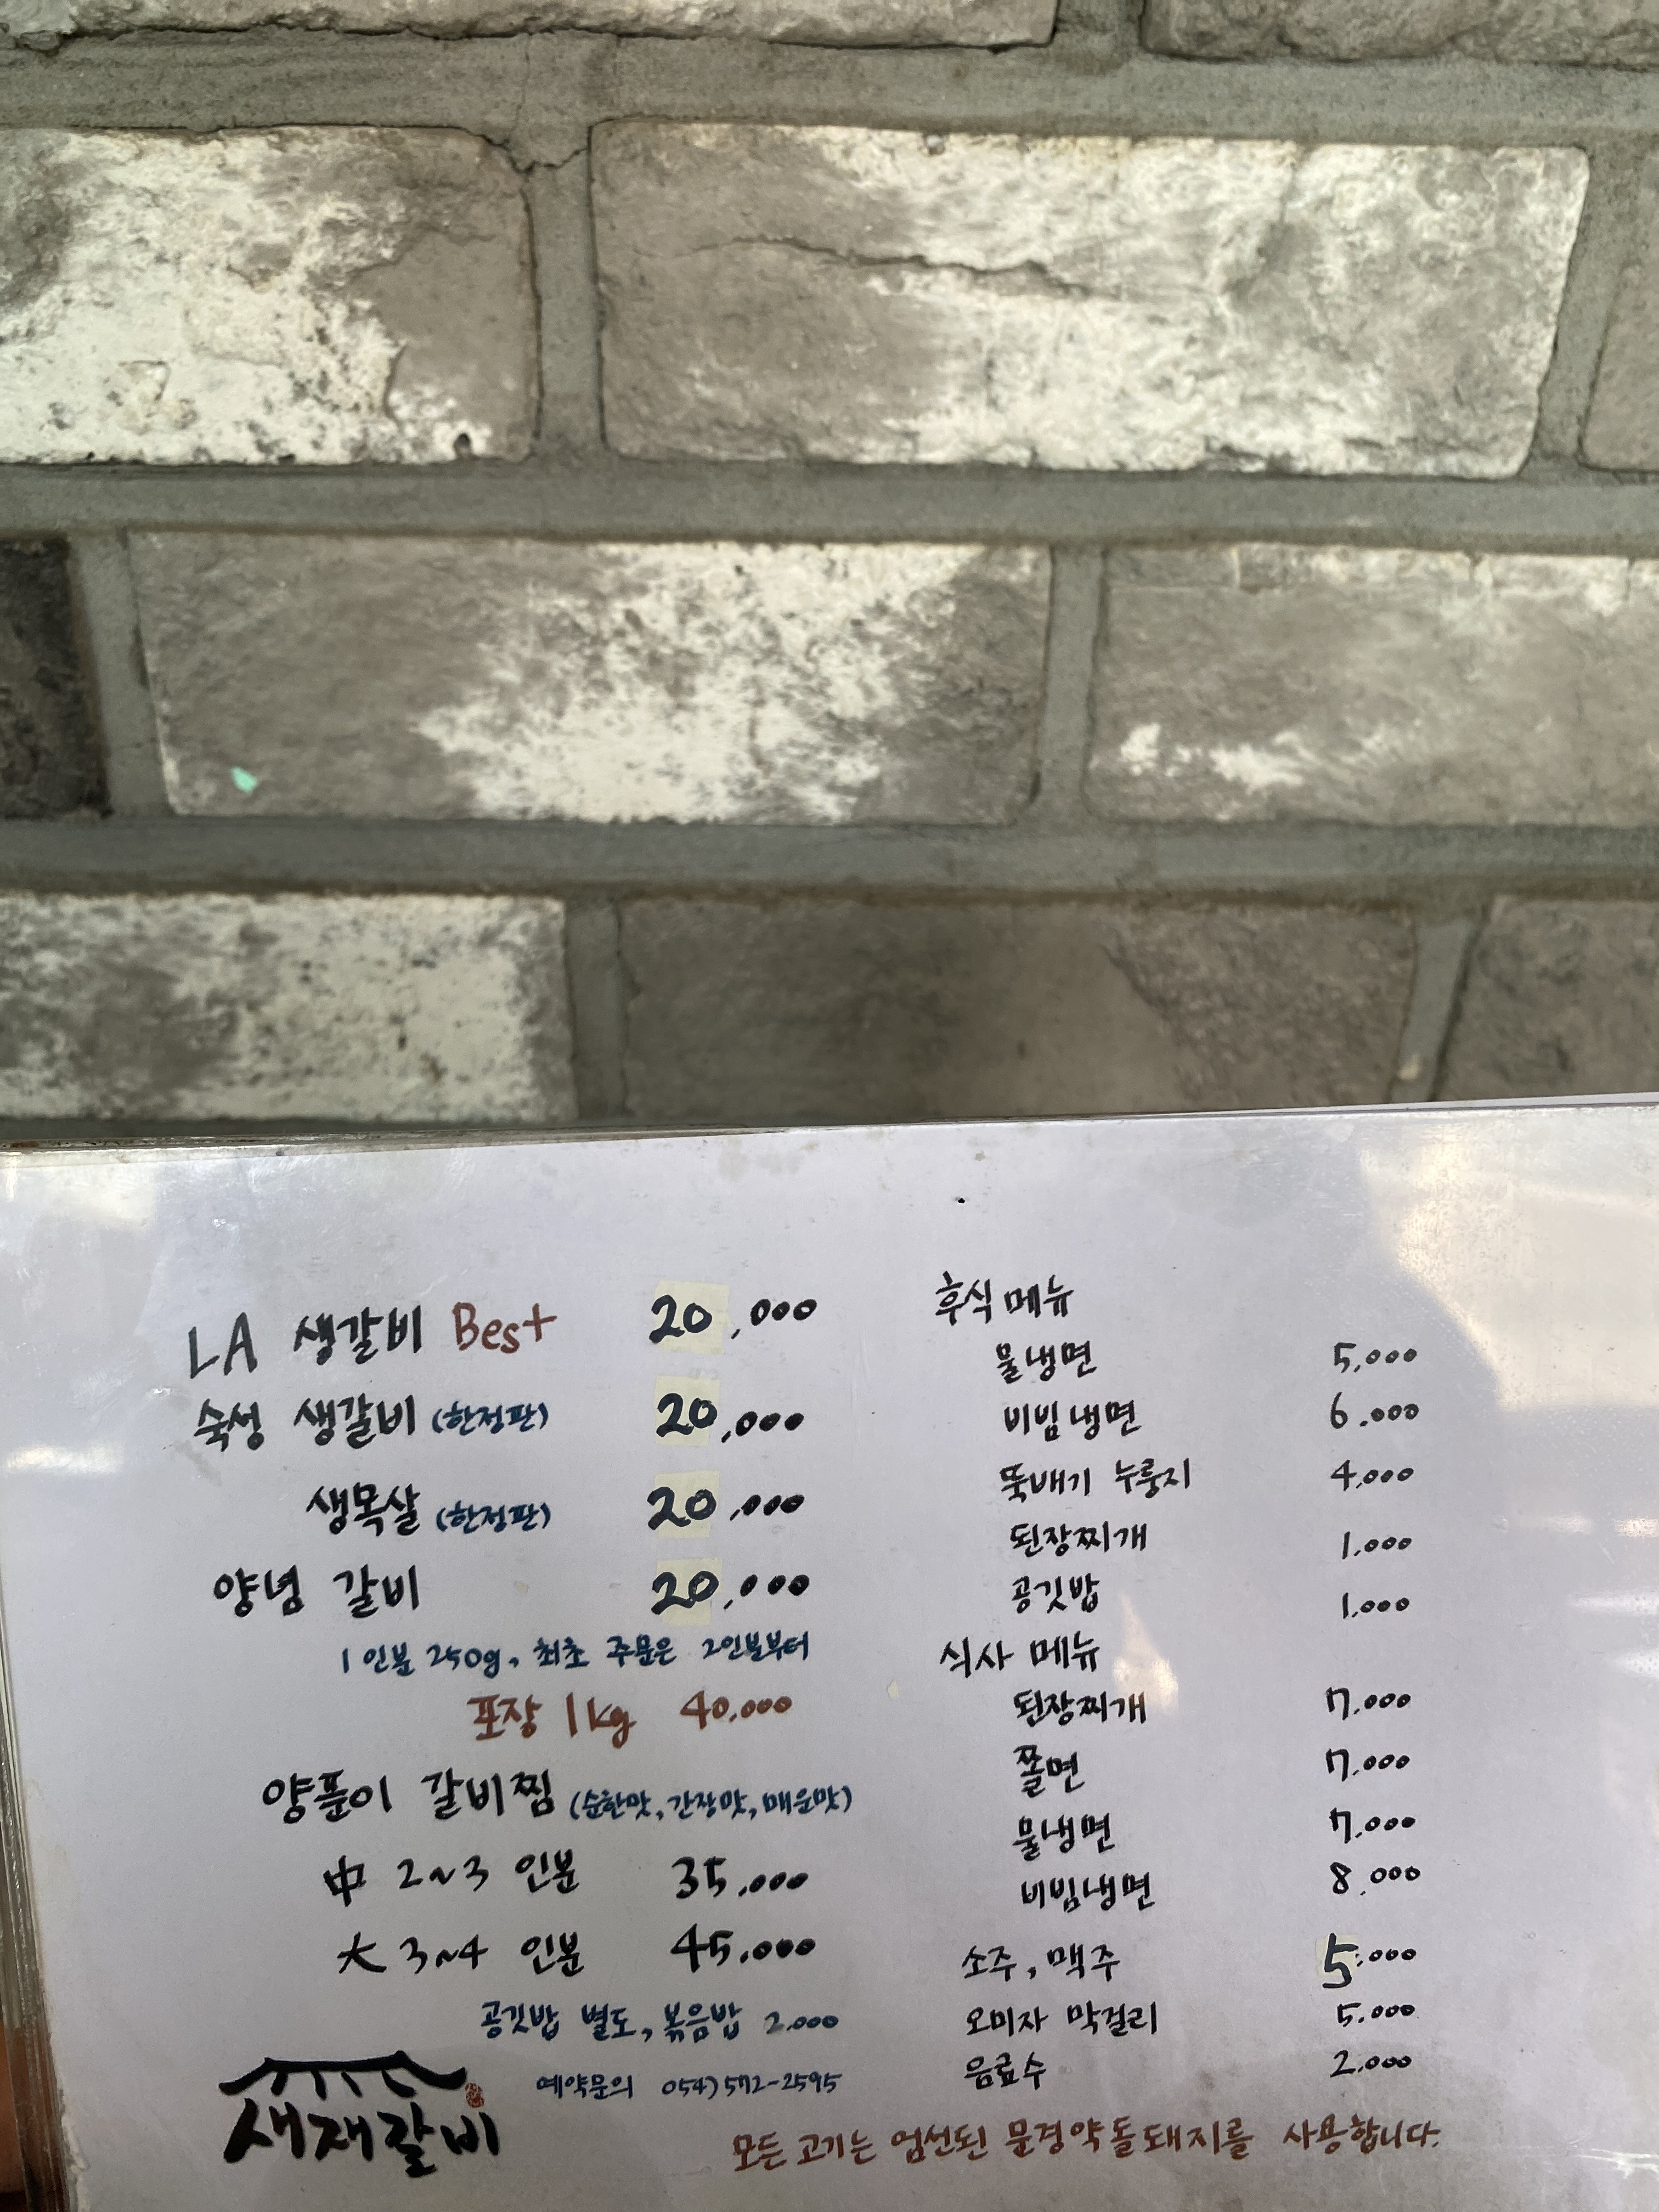 LA 생갈비 Best 20,000
숙성 생갈비 (한정판) 20,000
생목살 (한정판) 20,000
양념 갈비 20,000
1인분 250g, 최초 주문은 2인분부터
포장 1kg 40,000
양푼이 갈비찜 (순한맛, 간장맛, 매운맛)
中 2~3 인분 35,000
大 3~4 인분 45,000
공깃밥 별도, 볶음밥 2,000
예약문의 054)572-2595
새재갈비
후식 메뉴
물냉면 5,000
비빔냉면 6,000
뚝배기 누룽지 4,000
된장찌개 1,000
공깃밥 1,000
식사 메뉴
된장찌개 7,000
쫄면 7,000
물냉면 7,000
비빔냉면 8,000
소주, 맥주 5,000
오미자 막걸리 5,000
음료수 2,000
모든 고기는 엄선된 문경약돌돼지를 사용합니다.